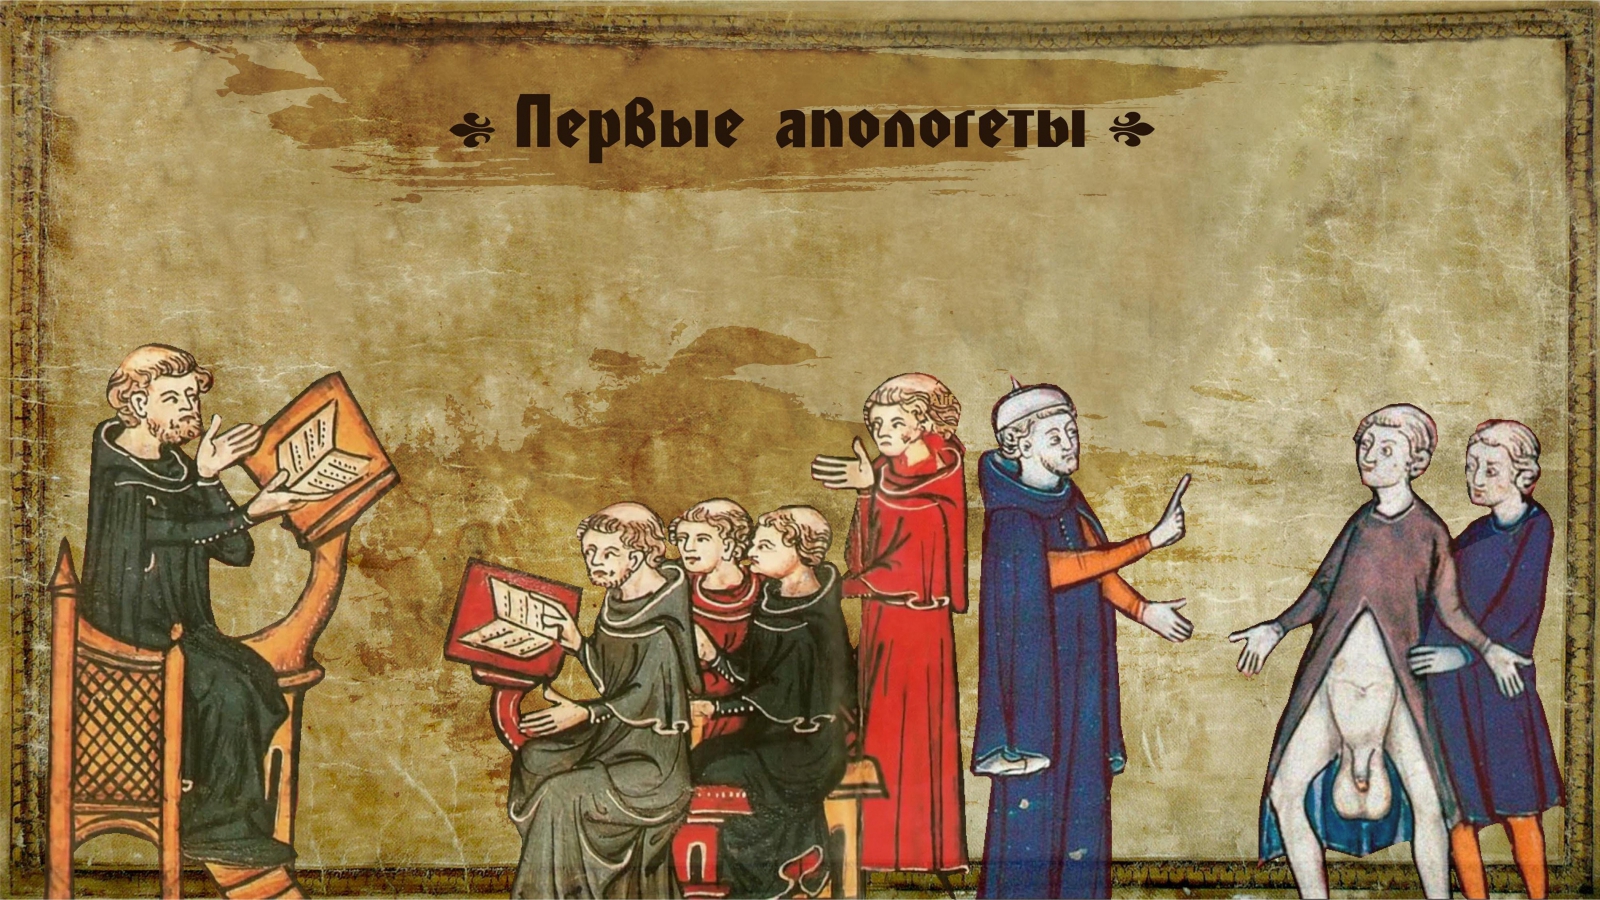 Первые апологеты